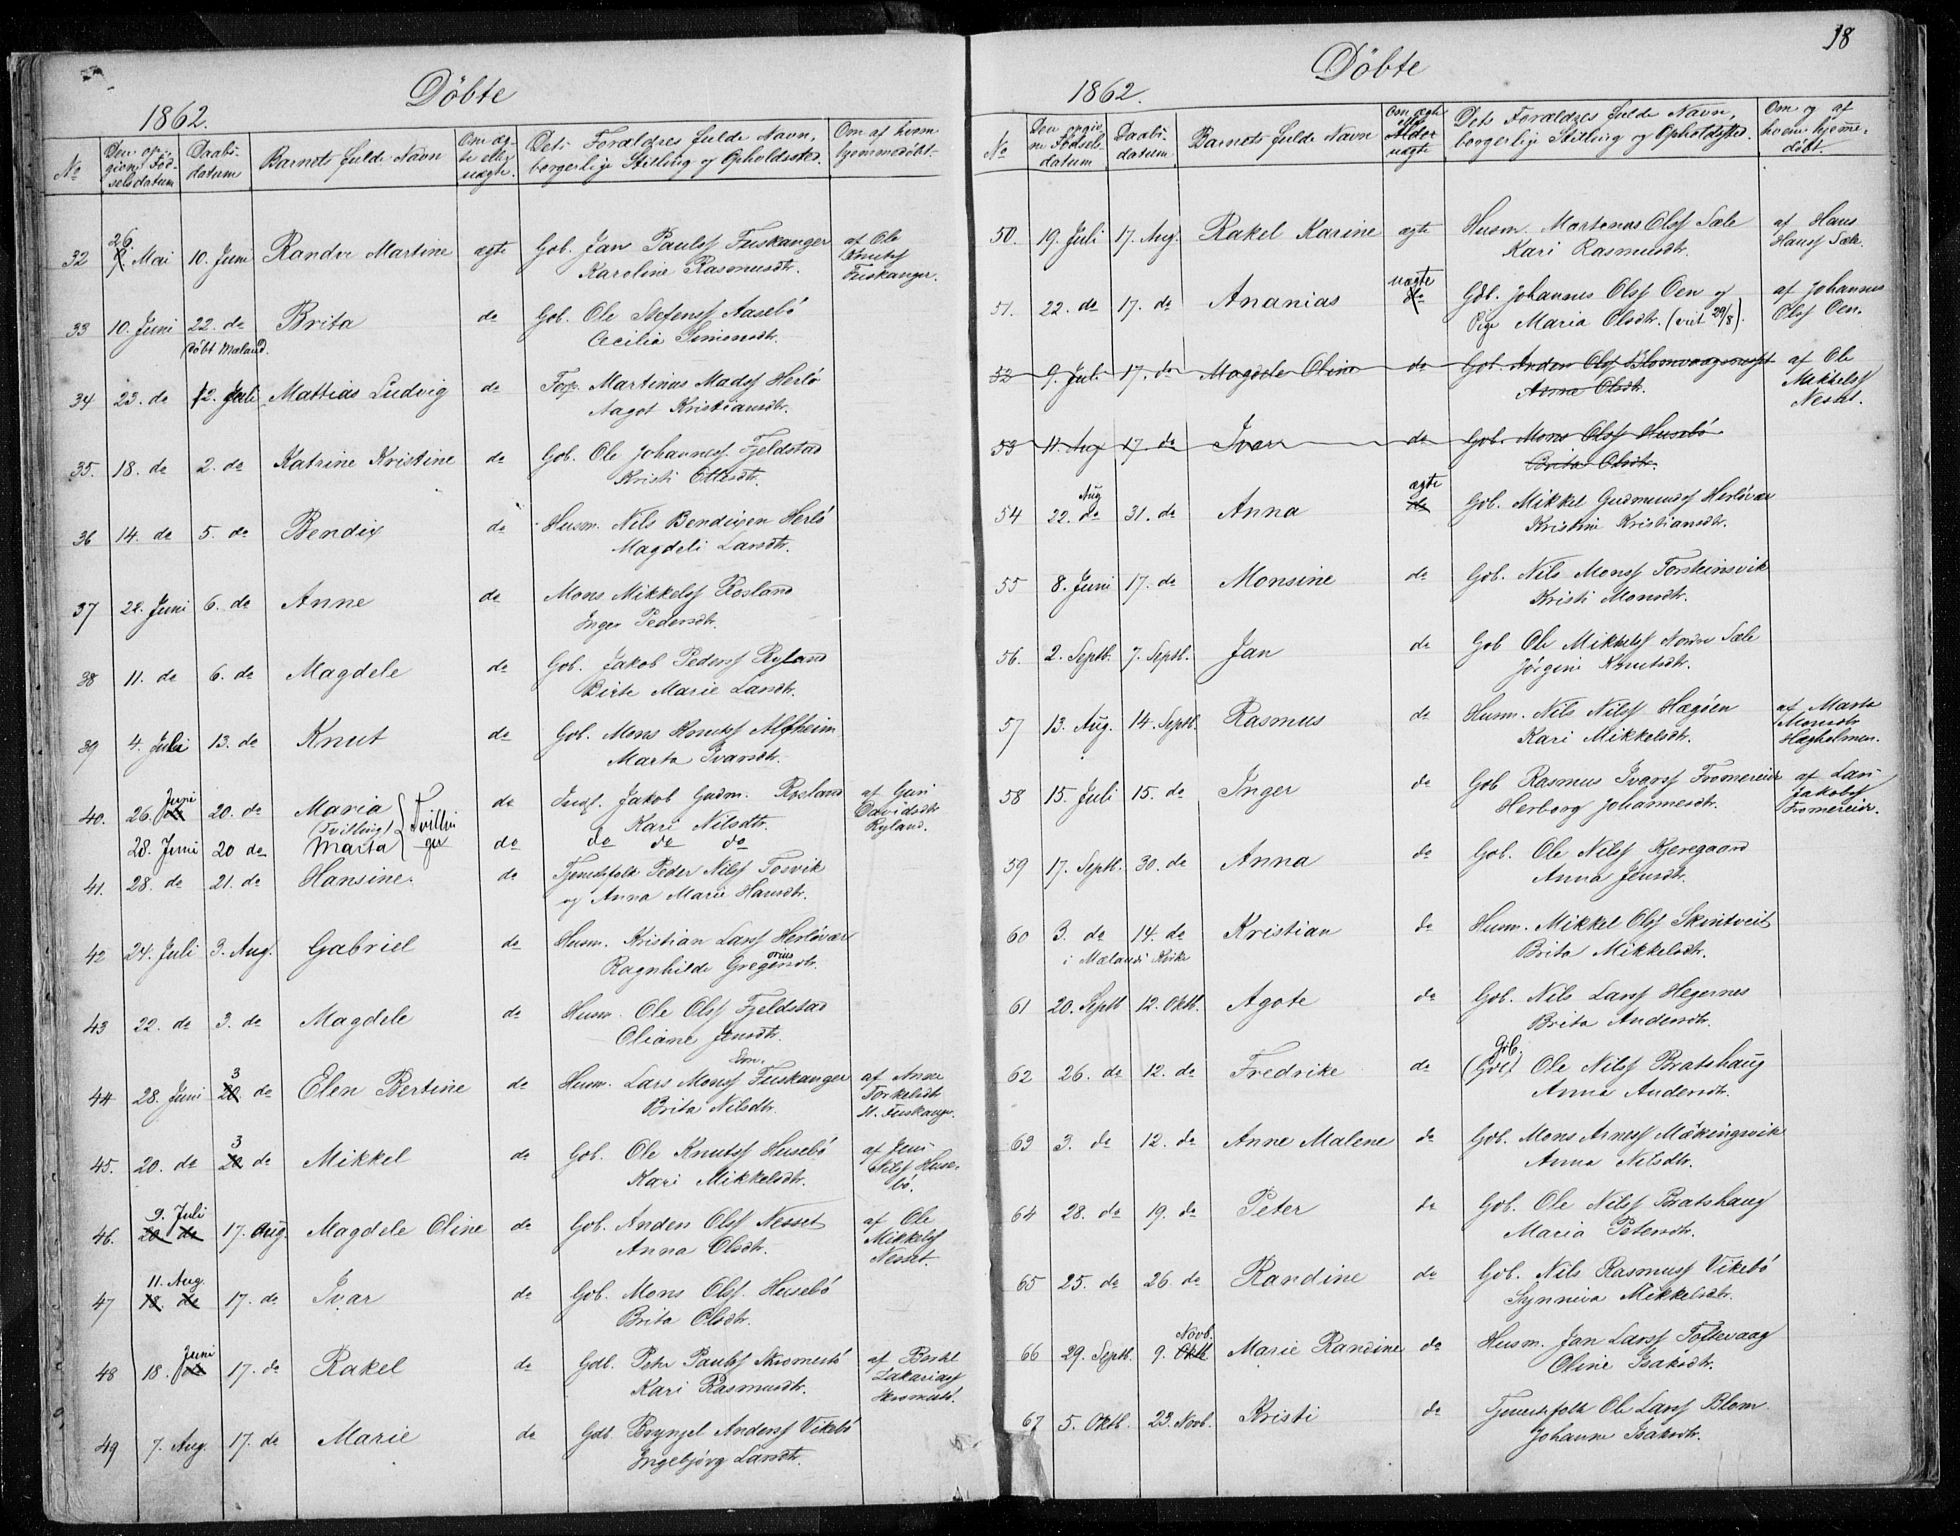 Döbte
1862.
No
Den op-
givne Fød-
selsdatum
Daabs-
datum
Barnets fulde Navn
Om æg-
te eller
uægte.
Dets Forældres fulde Navn,
borgerlige Stilling og Opholdssted.
Om af hvem
hjemmedöbt.
32 26. Mai 10. Juni Randve Martine ægte Gob. Jan Pauls Fuskanger af Ole
Karoline Rasmusdtr. Knuts
Fuskanger.
33 10. Juni 22. do Brita do Gob. Ole Stefens Aasebö
döbt Mæland. Cecilia Simonsdtr.
34 23. do 2. Juli Mattias Ludvig do Forp. Martinus Mads Herlö
Aagot Kristiansdtr.
35. 18. do 2. do Katrine Kristine do Gob. Ole Johanness Fjeldstad
Kristi Ottesdtr.
36 14. do 5. do Bendix do Husm. Nils Bendixen Herlö
Magdeli Larsdtr.
37 22. Juni 6. do Anne do Mons Mikkels Rosland
Inger Pedersdtr.
38 11. do 6. do Magdele do Gob. Jakob Peders Ryland
Birte Marie Larsdtr.
39 4. Juli 13. do Knut do Gob. Mons Knuts Alfheim
Marta Ivarsdtr.
40. 26. Juni 20. do Maria do Jakob Gudm. Rosland af Guri
(Tvilling) Tvillin Kari Nilsdtr. Davidsdtr
28. Juni 20 do Marta ger do do do do Ryland.
41. 28. do 21. do Hansine. do Tjenestfolk Peder Nils Tosvik
og Anna Marie Hansdtr.
42 24. Juli 3. Aug. Gabriel do Husm. Kristian Lars Herlövær
Ragnhilde Gregoriusdtr.
43 22. do 3. do Magdele do Husm. Ole Ols Fjeldstad
Oliane Jensdtr.
44 28. Juni 3 do Elen Bertine do Husm. Lars Mons Fuskanger af Anne
Brita Nilsdtr. Torkelsdtr
N. Fuskanger.
45. 20. do 3 do Mikkel do Gob. Ole Knuts Husebö af Jens
Kari Mikkelsdtr. Nils Huse-
bö.
46. 9. Juli 17. Aug. Magdele Oline do Gob. Anders Ols Nesset af Ole
Anna Olsdtr. Mikkels
Nesset.
47 11. Aug. 17. do Ivar do Gob. Mons Ols. Husebö
Brita Olsdtr.
48 18. Juni 17. do Rakel do Gdb. Peter Pauls Skromestö af Bertel
Kari Rasmusdtr. Sakarias
Skromestö.
49 7. Aug. 17. do Marie do Gdb. Brynjel Anders Vikebö
Ingebjörg Larsdtr.
18
Döbte
1862.
No
Den opgiv-
ne Fødsels-
datum
Daabs-
datum
Barnets fulde Navn
Om ægte
eller
uægte
Dets Forældres fulde Navn,
borgerlige Stilling og Opholdssted.
Om og af
hvem hjemme-
döbt.
50. 19. Juli 17. Aug. Rakel Karine ægte Husm. Martenus Ols Sæle af Hans
Kari Rasmusdtr. Hans Sæle.
51. 22. do 17. do Ananias uægte Gdb. Johannes Ols Oen og af Johannes
Pige Maria Olsdtr. (viet 29/8). Ols Oen.
52 9. Juli 17. do Magdele Oline do Gob. Anders Ols Blomvaagsnesset af Ole
Anna Olsdtr. Mikkels
Nesset.
53 11. Aug 17. do Ivar do Gob. Mons Ols Husebö
Brita Olsdtr.
54 22. Aug 31. do Anna ægte Gob. Mikkel Gudmunds Herlövær
Kristine Kristiansdtr.
55 8. Juni 17. do Monsine do Gob. Nils Mons Torsteinsvik
Kristi Monsdtr.
56. 2. Septb. 7. Septb. Jan do Gob Ole Mikkels Nordre Sæle
Jörgine Knutsdtr.
57 13. Aug. 14. Septb. Rasmus do Husm. Nils Nils Hægöen af Marta
Kari Mikkelsdtr. Monsdtr
Hægholmen.
58 15. Juli 15. do Inger do Gob Rasmus Ivars Fromereide af Lars
Herborg Johannesdtr. Jakobs
Fromereide.
59 17. Septb. 30. do Anna do Gob. Ole Nils Kjeregaard
Anna Jensdtr.
60 3. do 14. do Kristian do Husm. Mikkel Ols Skintveit
i Mælands Kirke Brita Mikkelsdtr.
61 20. Septb 12. Oktb. Agote do Gob. Nils Lars Hegernes
Brita Andersdtr.
62 26. do 12. do Fredrike do Gob. Ole Nils Bratshaug
Anna Andersdtr.
63 3. do 12. do Anne Malene do Gdb. Mons Arnes Mökingsvik
Anna Nilsdtr.
64 28. do 19. do Peter do Gob. Ole Nils Bratshaug
Maria Petersdtr.
65 25. do 26. do Randine do Gob. Nils Rasmus Vikebö
Synneva Mikkelsdtr.
66 29. Septb. 9. Novb. Marie Randine do Husm. Jan Lars Toftevaag
Oline Isaksdtr.
67 5. Oktb. 23. Novb. Kristi do Tjenestfolk Ole Lars Blom
Johanne Isaksdtr.